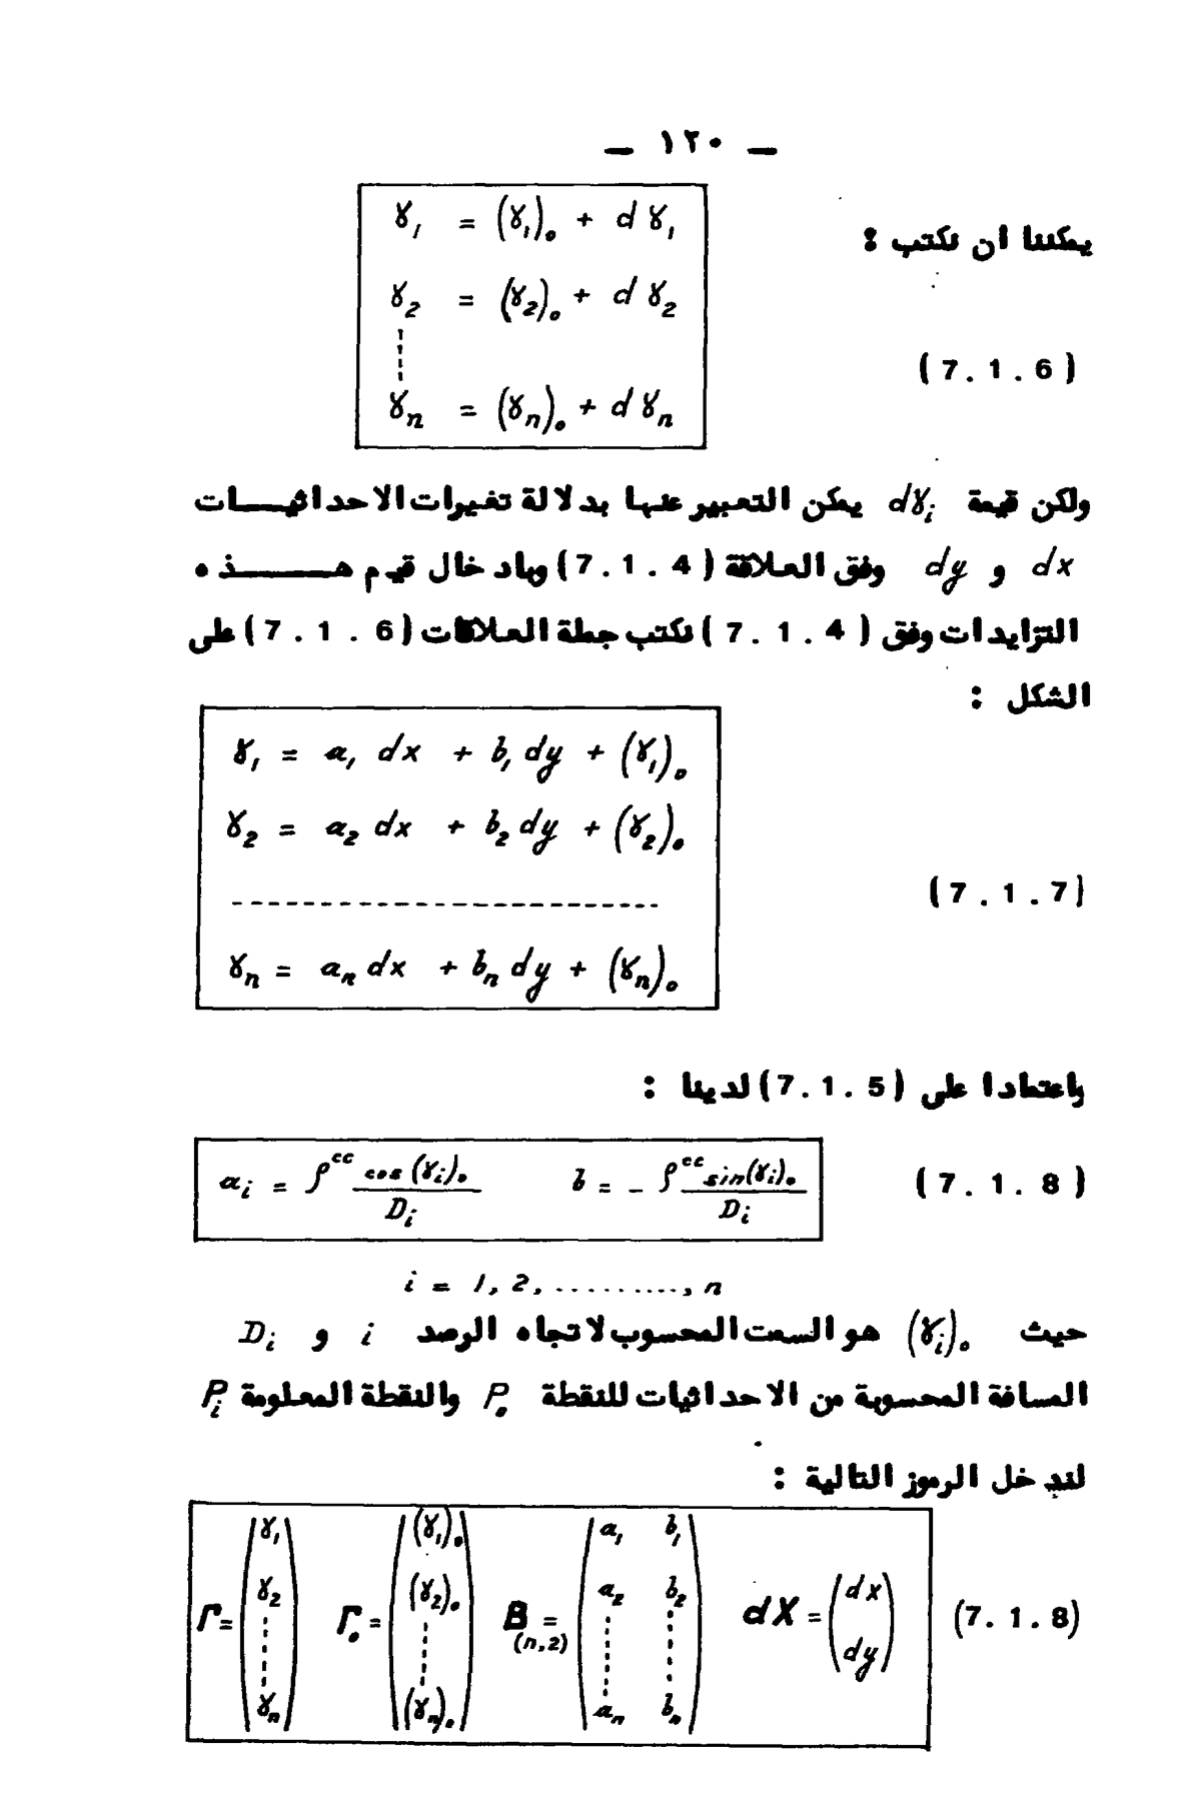 — ١٢٠ —
يمكننا ان نكتب :
γ₁ = (γ₁)₀ + d γ₁
γ₂ = (γ₂)₀ + d γ₂
γₙ = (γₙ)₀ + d γₙ
(7.1.6)
ولكن قيمة dγᵢ يمكن التعبير عنها بدلالة تغيرات الاحداثيـــات
dx و dy وفق العلاقة (7.1.4) وبادخال قيم هـــــذه
التزايدات وفق (7.1.4) نكتب جملة العلاقات (7.1.6) على
الشكل :
γ₁ = a₁ dx + b₁ dy + (γ₁)₀
γ₂ = a₂ dx + b₂ dy + (γ₂)₀
- - - - - - - - - - - - - - - - - - - -
γₙ = aₙ dx + bₙ dy + (γₙ)₀
(7.1.7)
واعتمادا على (7.1.5) لدينا :
aᵢ = ρᶜᶜ cos (γᵢ)₀ / Dᵢ b = - ρᶜᶜ sin(γᵢ)₀ / Dᵢ (7.1.8)
i = 1, 2, .........., n
حيث (γᵢ)₀ هو السمت المحسوب لاتجاه الرصد i و Dᵢ
المسافة المحسوبة من الاحداثيات للنقطة P₀ والنقطة المعلومة Pᵢ
لندخل الرموز التالية :
Γ = (γ₁ γ₂ γₙ) Γ₀ = ((γ₁)₀ (γ₂)₀ (γₙ)₀) B (n,2) = (a₁ b₁ a₂ b₂ aₙ bₙ) dX = (dx dy) (7.1.8)